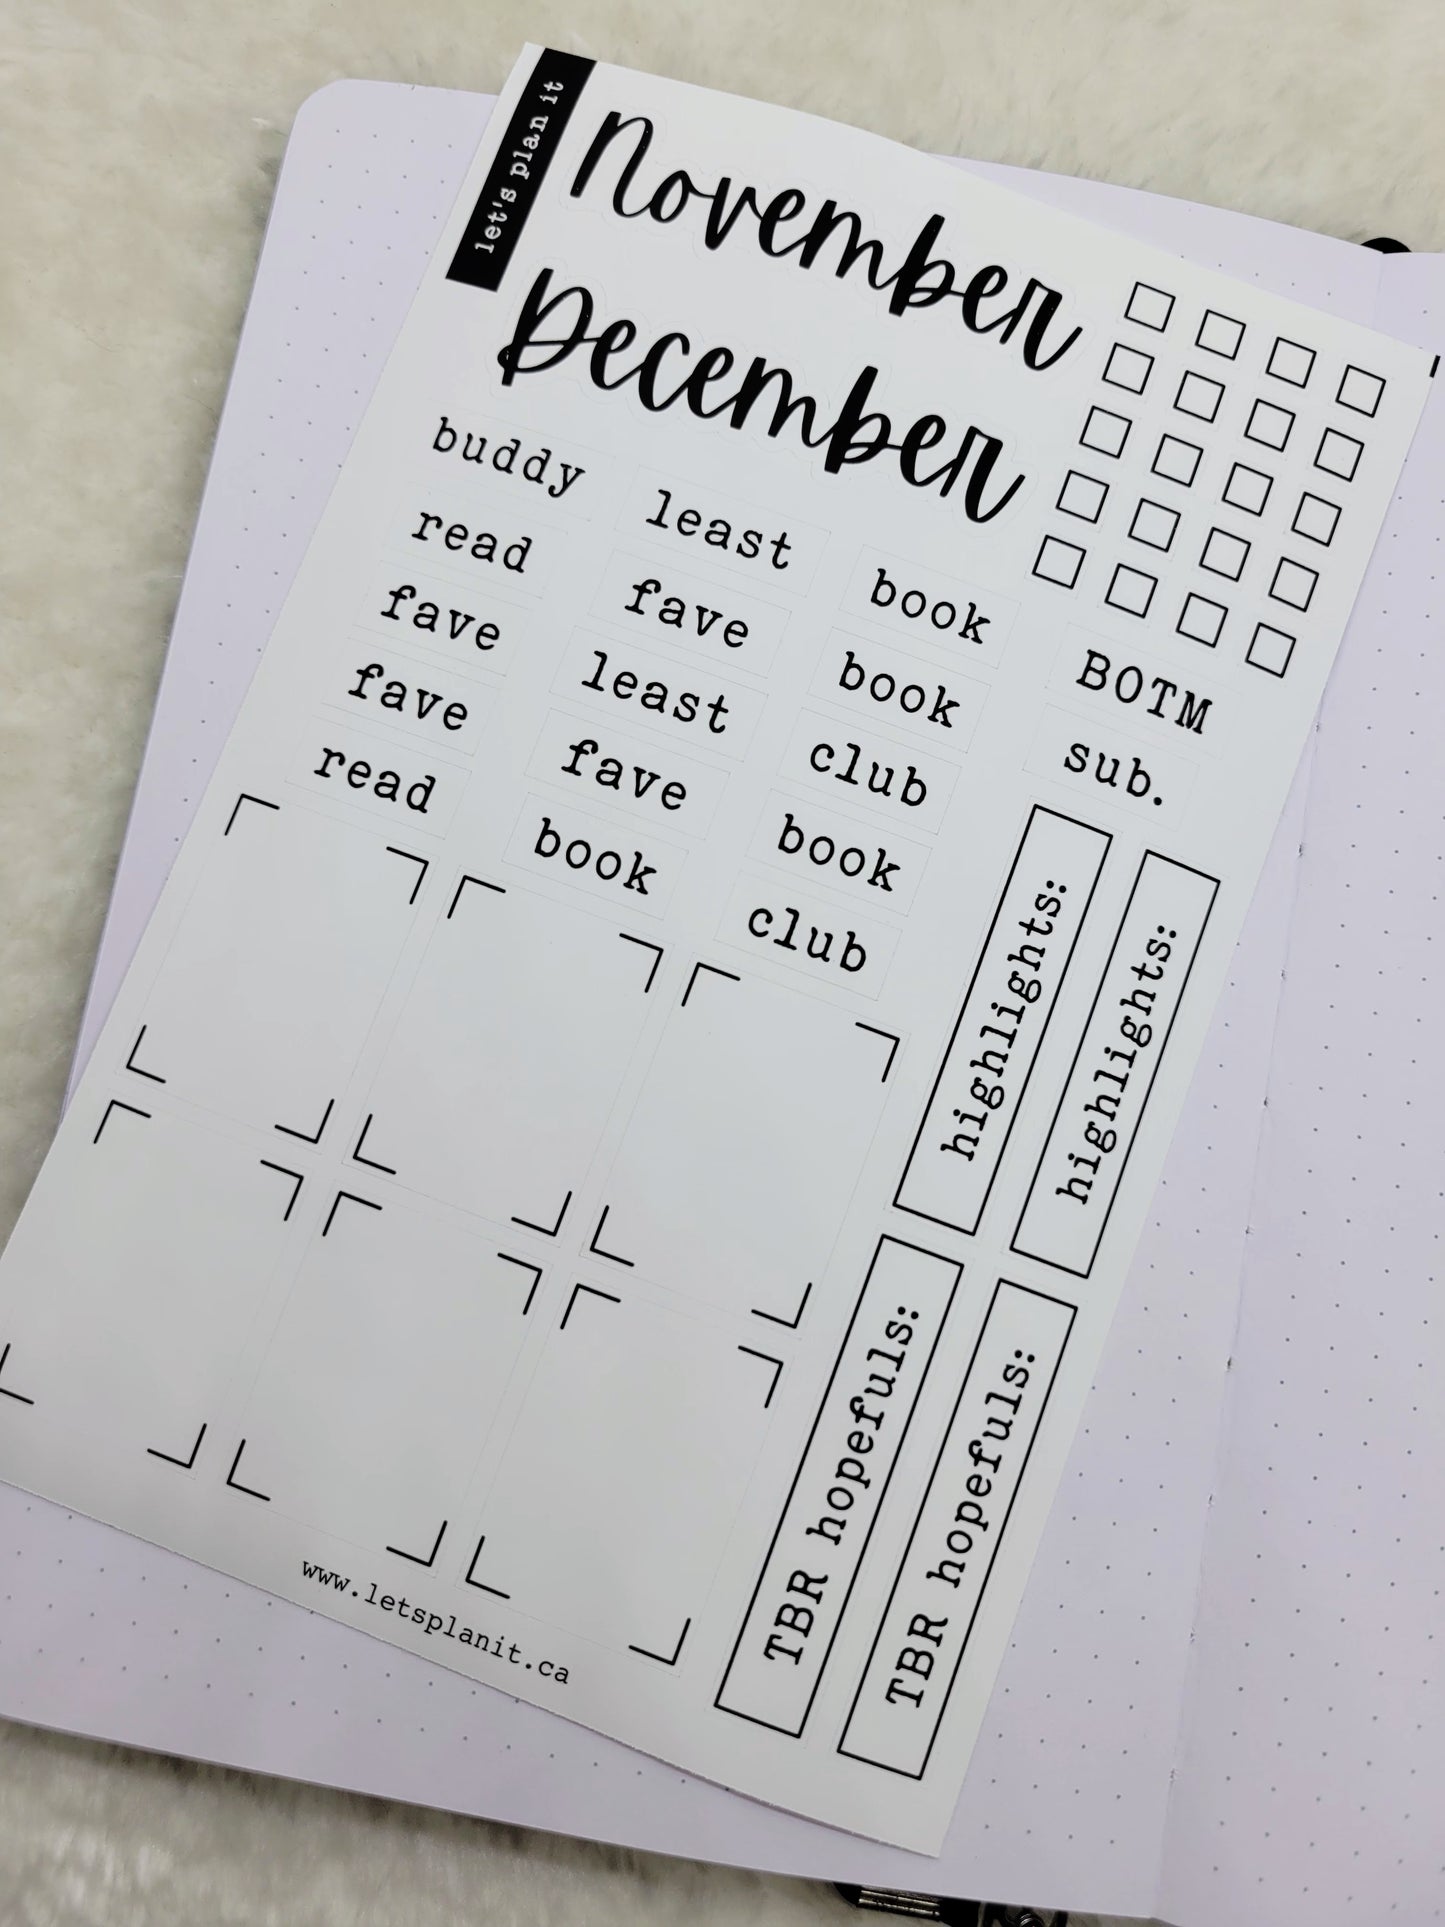 let's plan it
November
December
buddy
read
fave
fave
read
least
fave
least
fave
book
book
book
club
book
club
BOTM
sub.
highlights:
highlights:
TBR hopefuls:
TBR hopefuls:
www.letsplanit.ca